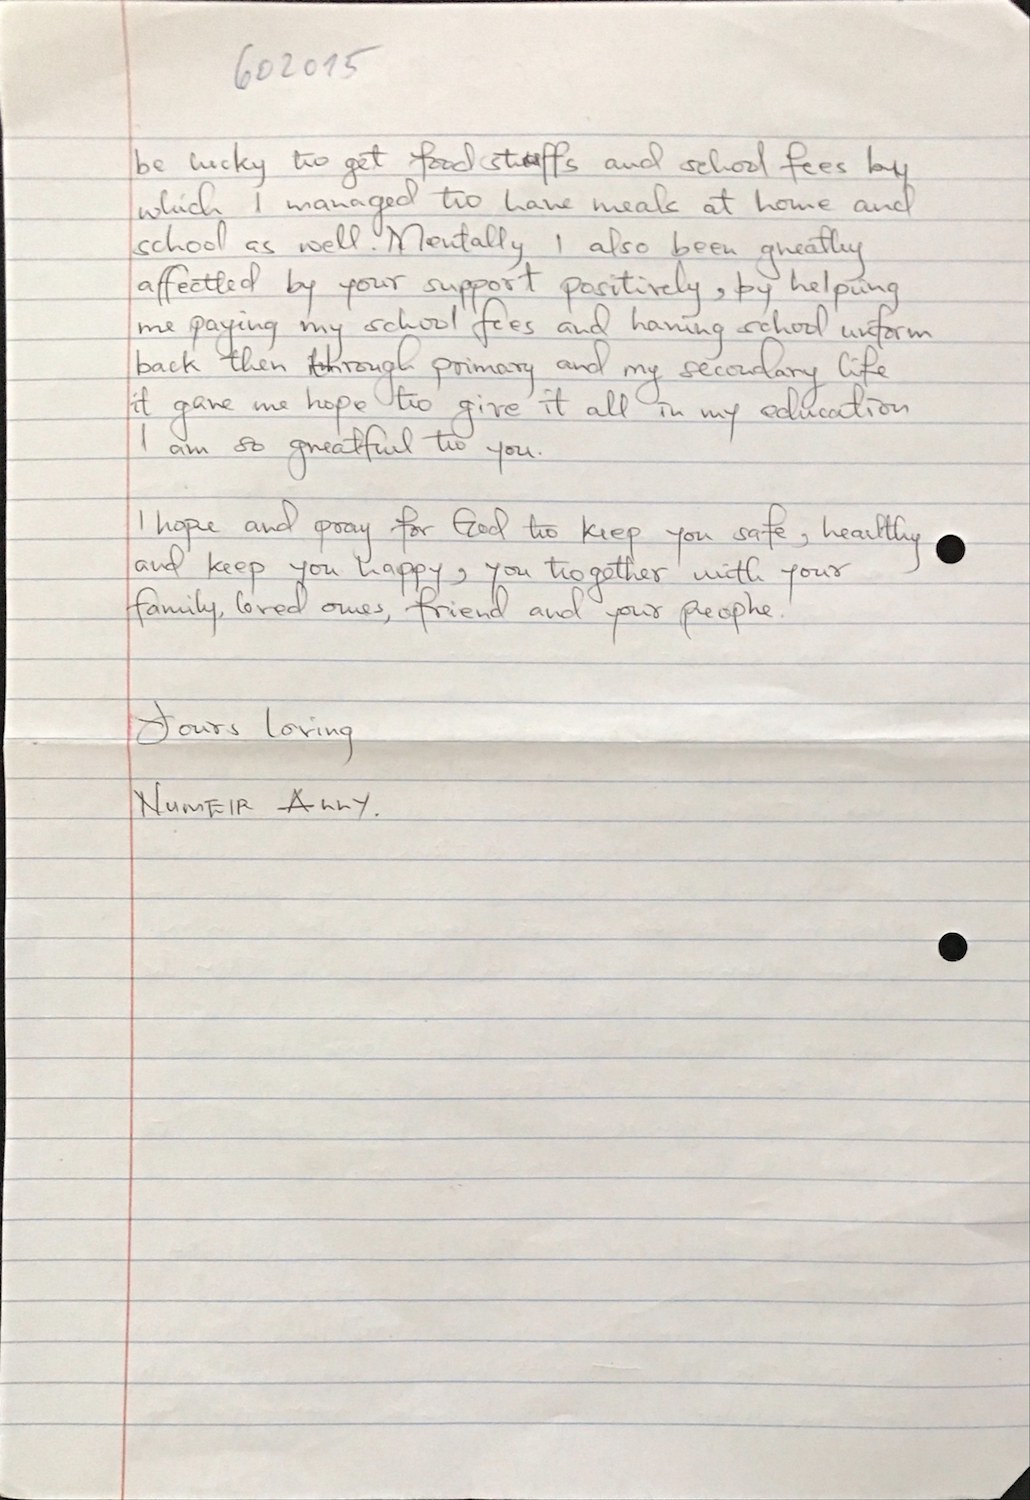 602015
be lucky to get food stuffs and school fees by
which I managed to have meals at home and
school as well. Mentally, I also been greatly
affected by your support positively, by helping
me paying my school fees and having school uniform
back then through primary and my secondary life
it gave me hope to give it all in my education
I am so greatful to you.
I hope and pray for God to keep you safe, healthy
and keep you happy, you together with your
family, loved ones, friend and your people.
Yours loving
NUMEIR ANNY.